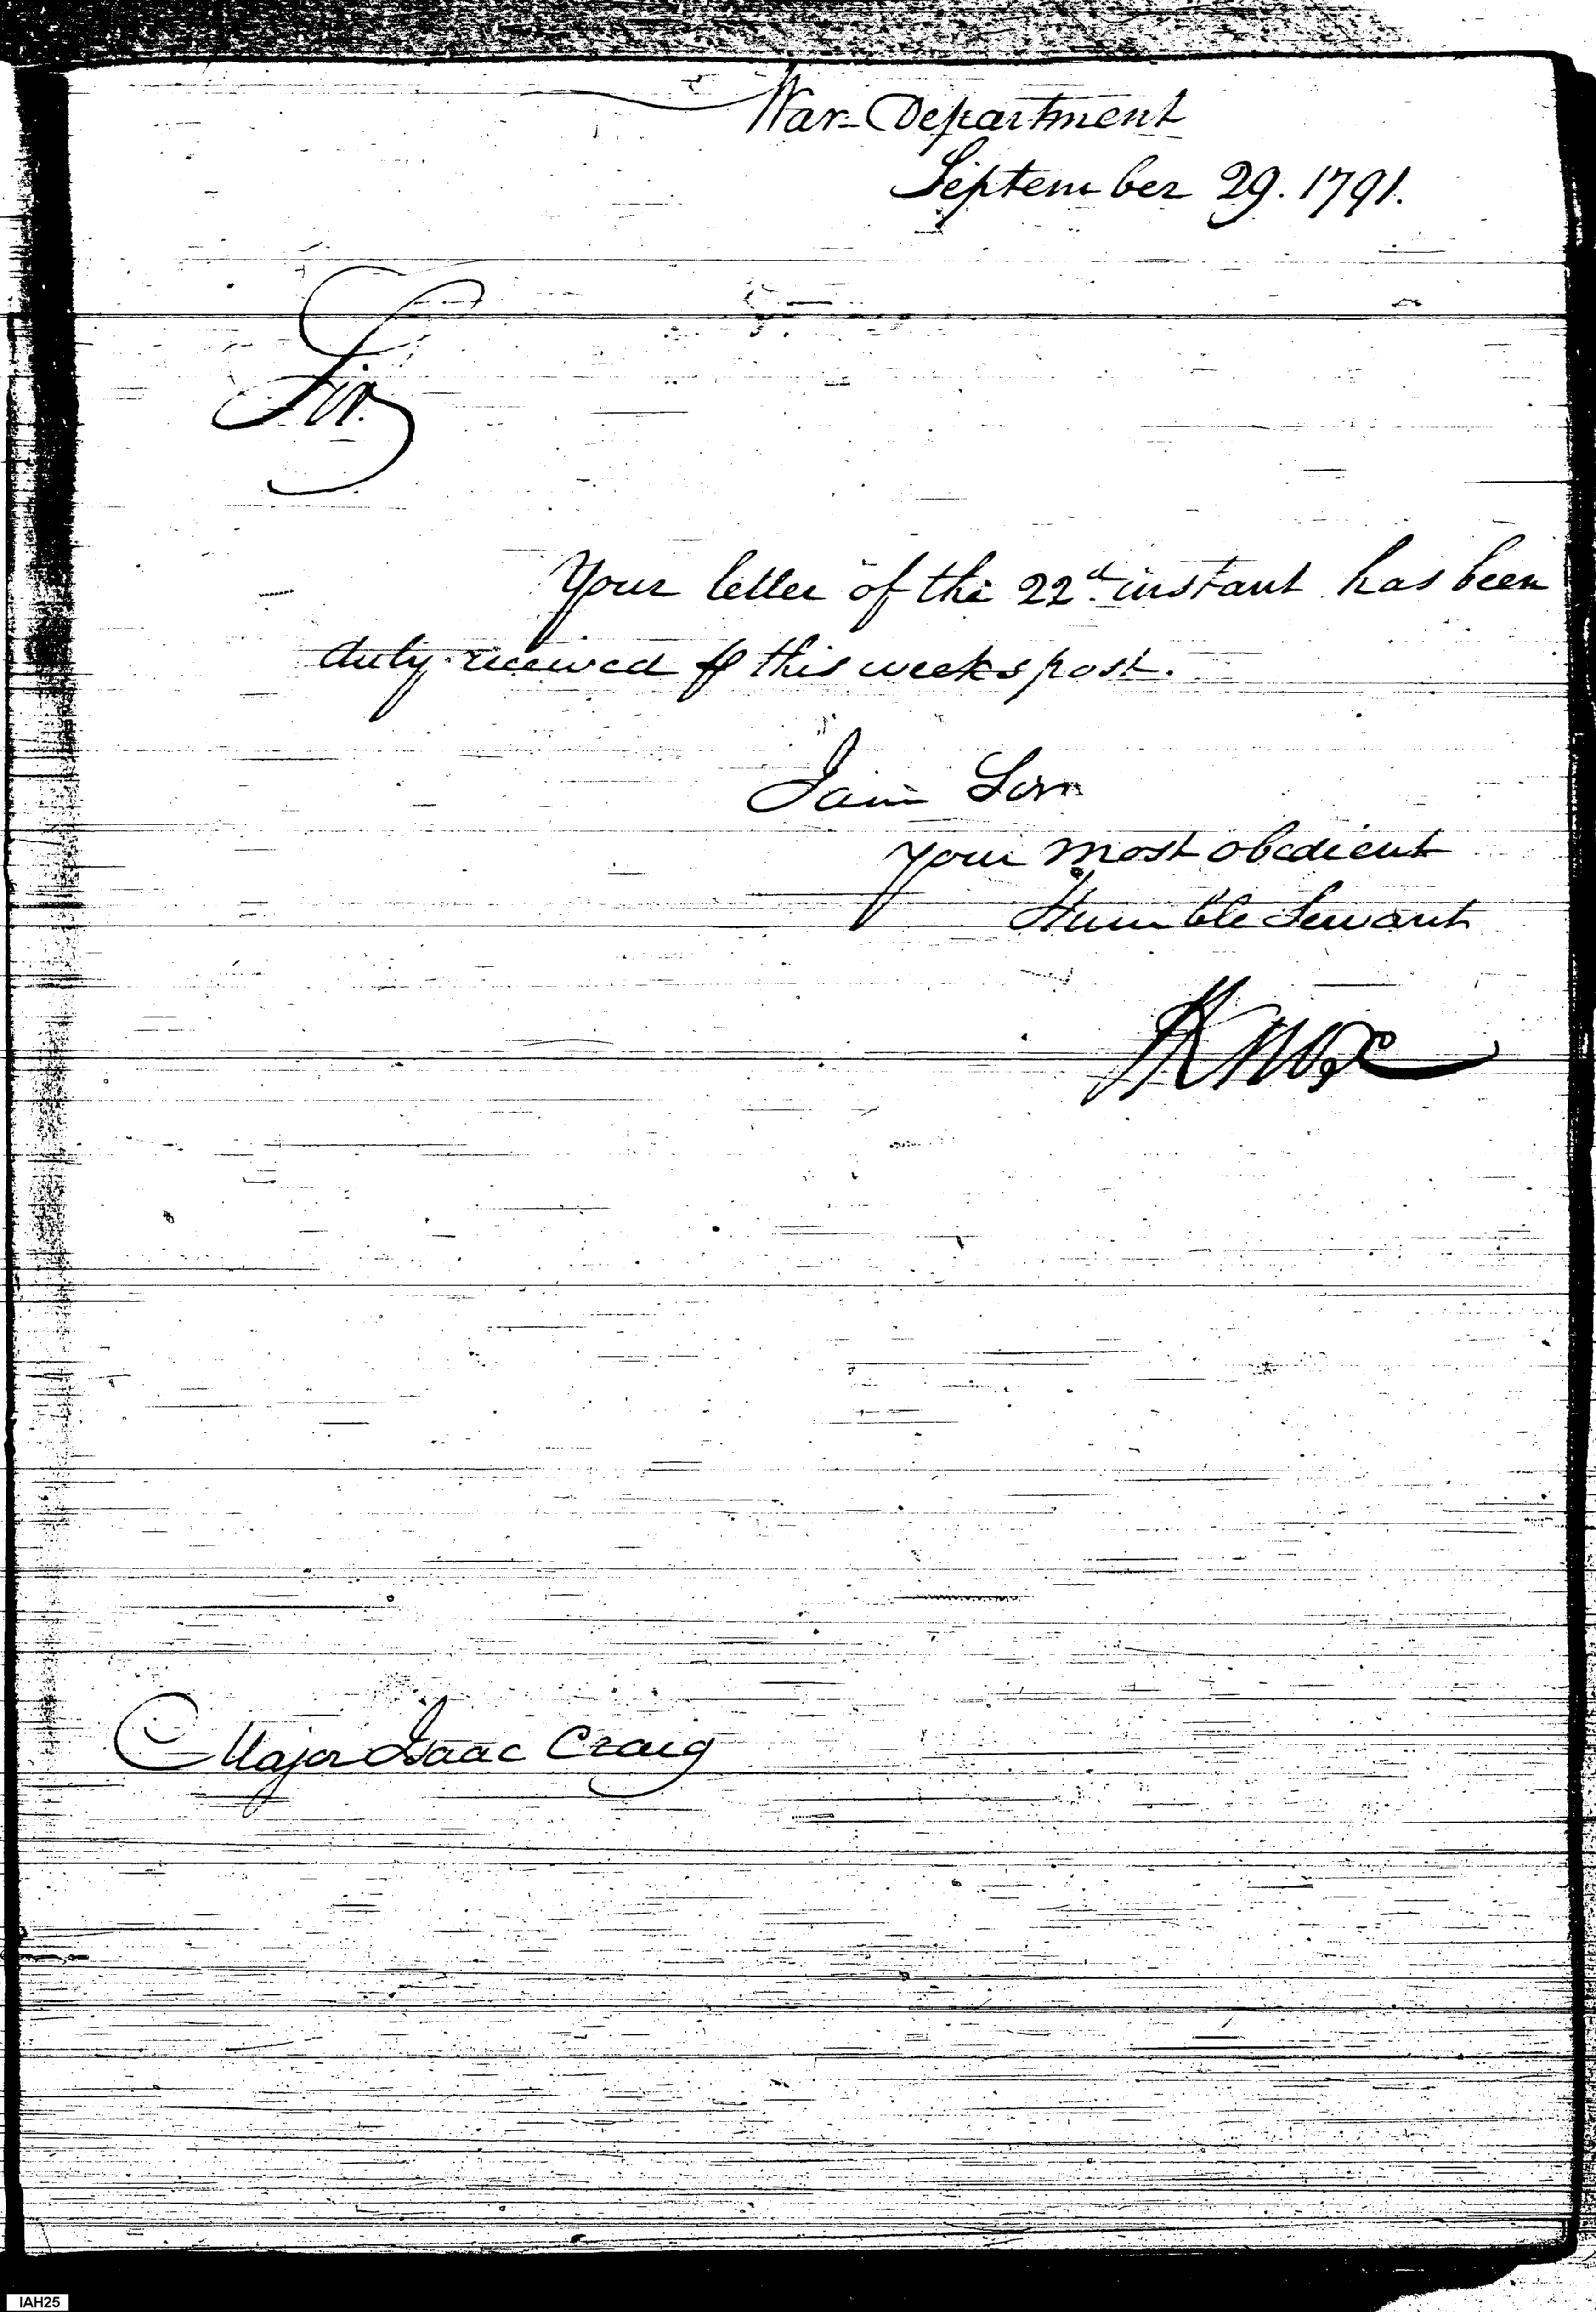 War-Department
September 29. 1791.
Sir.
Your letter of the 22d. instant has been
duly received ⅌ this weeks post.
I am Sir
your most obedient
Humble Servant
HKnox
Major Isaac Craig
IAH25